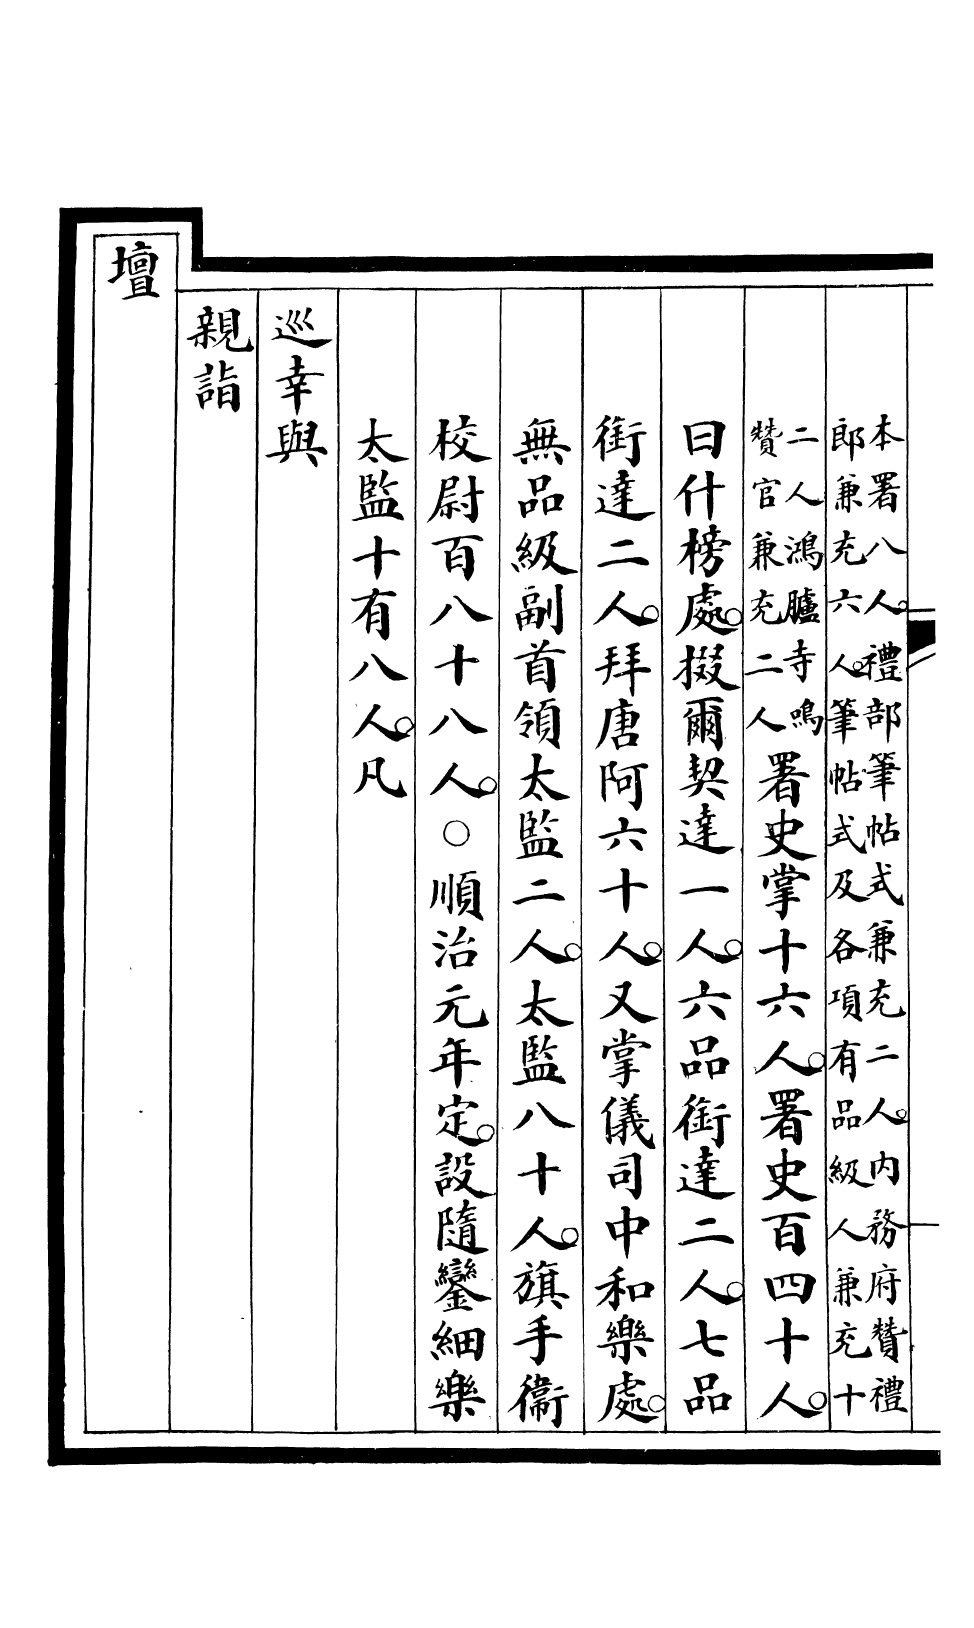 本署八人。禮部筆帖式兼充二人。内務府贊禮
郎兼充六人。筆帖式及各項有品級人兼充十
二人鴻臚寺鳴
贊官兼充二人
署史掌十六人。署史百四十人。
曰什榜處。掇爾契達一人。六品銜達二人。七品
銜達二人。拜唐阿六十人。又掌儀司中和樂處。
無品級副首領太監二人。太監八十人。旗手衞
校尉百八十八人。○順治元年定。設隨鑾細樂
太監十有八人。凡
巡幸與
親詣
壇